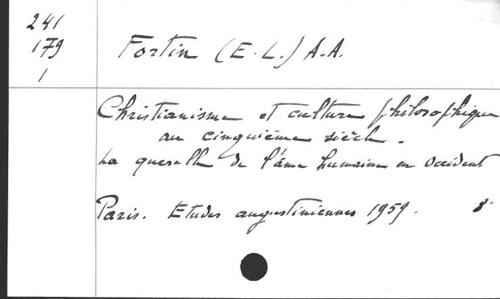 241
179
1
Fortin (E.L.) A.A.
Christianisme et culture philosophique
au cinquième siècle.
La querelle de l'âme humaine en Occident
Paris. Etudes augustiniennes 1959. 8°